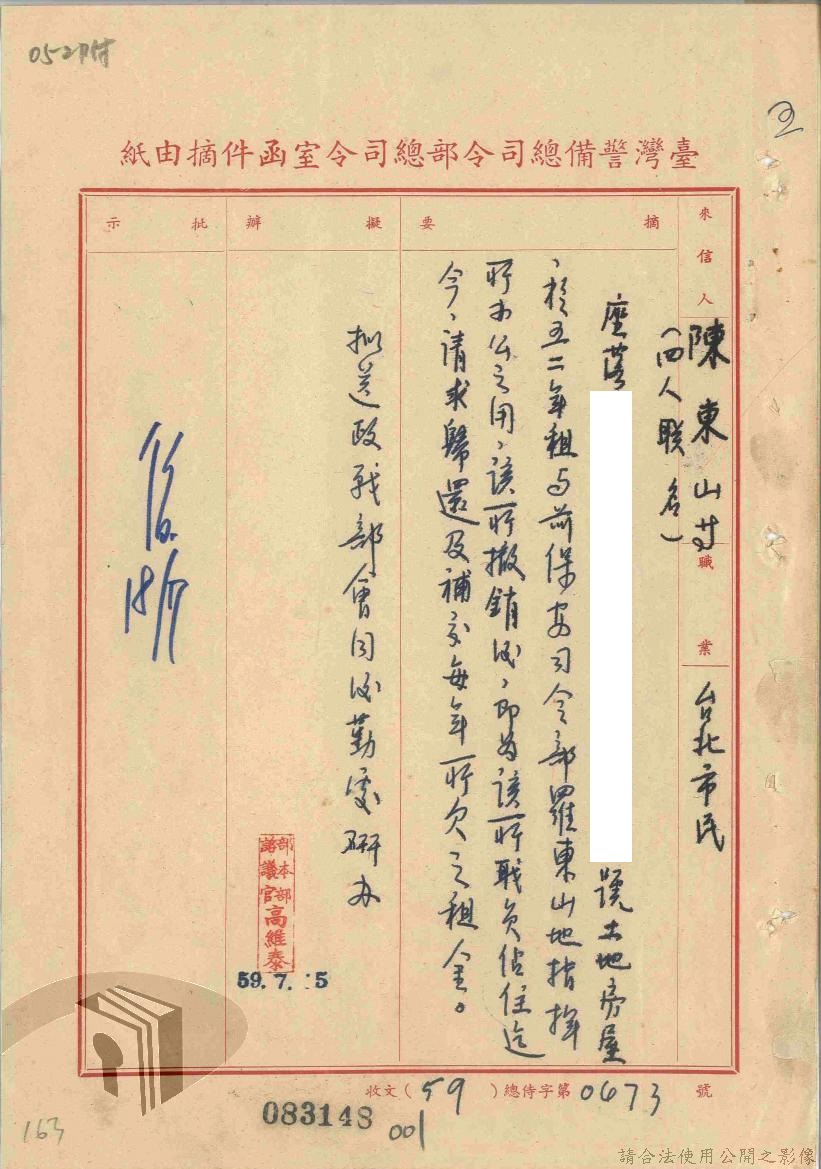 052附
臺灣警備總司令部總司令室函件摘由紙
來信人
陳東山等
(四人联名)
職業
台北市民
摘要
座落
號土地房屋
、於五二年租与前保安司令部羅東山地指揮
所办公之用、該所撤銷後、即為該所職員佔住迄
今、請求歸還及補交每年所欠之租金。
擬辦
拟送政战部會同後勤處研办
部本部
諮議官高維泰
59.7.15
批示
收文(59)總侍字第0673號
083148
001
163
請合法使用公開之影像